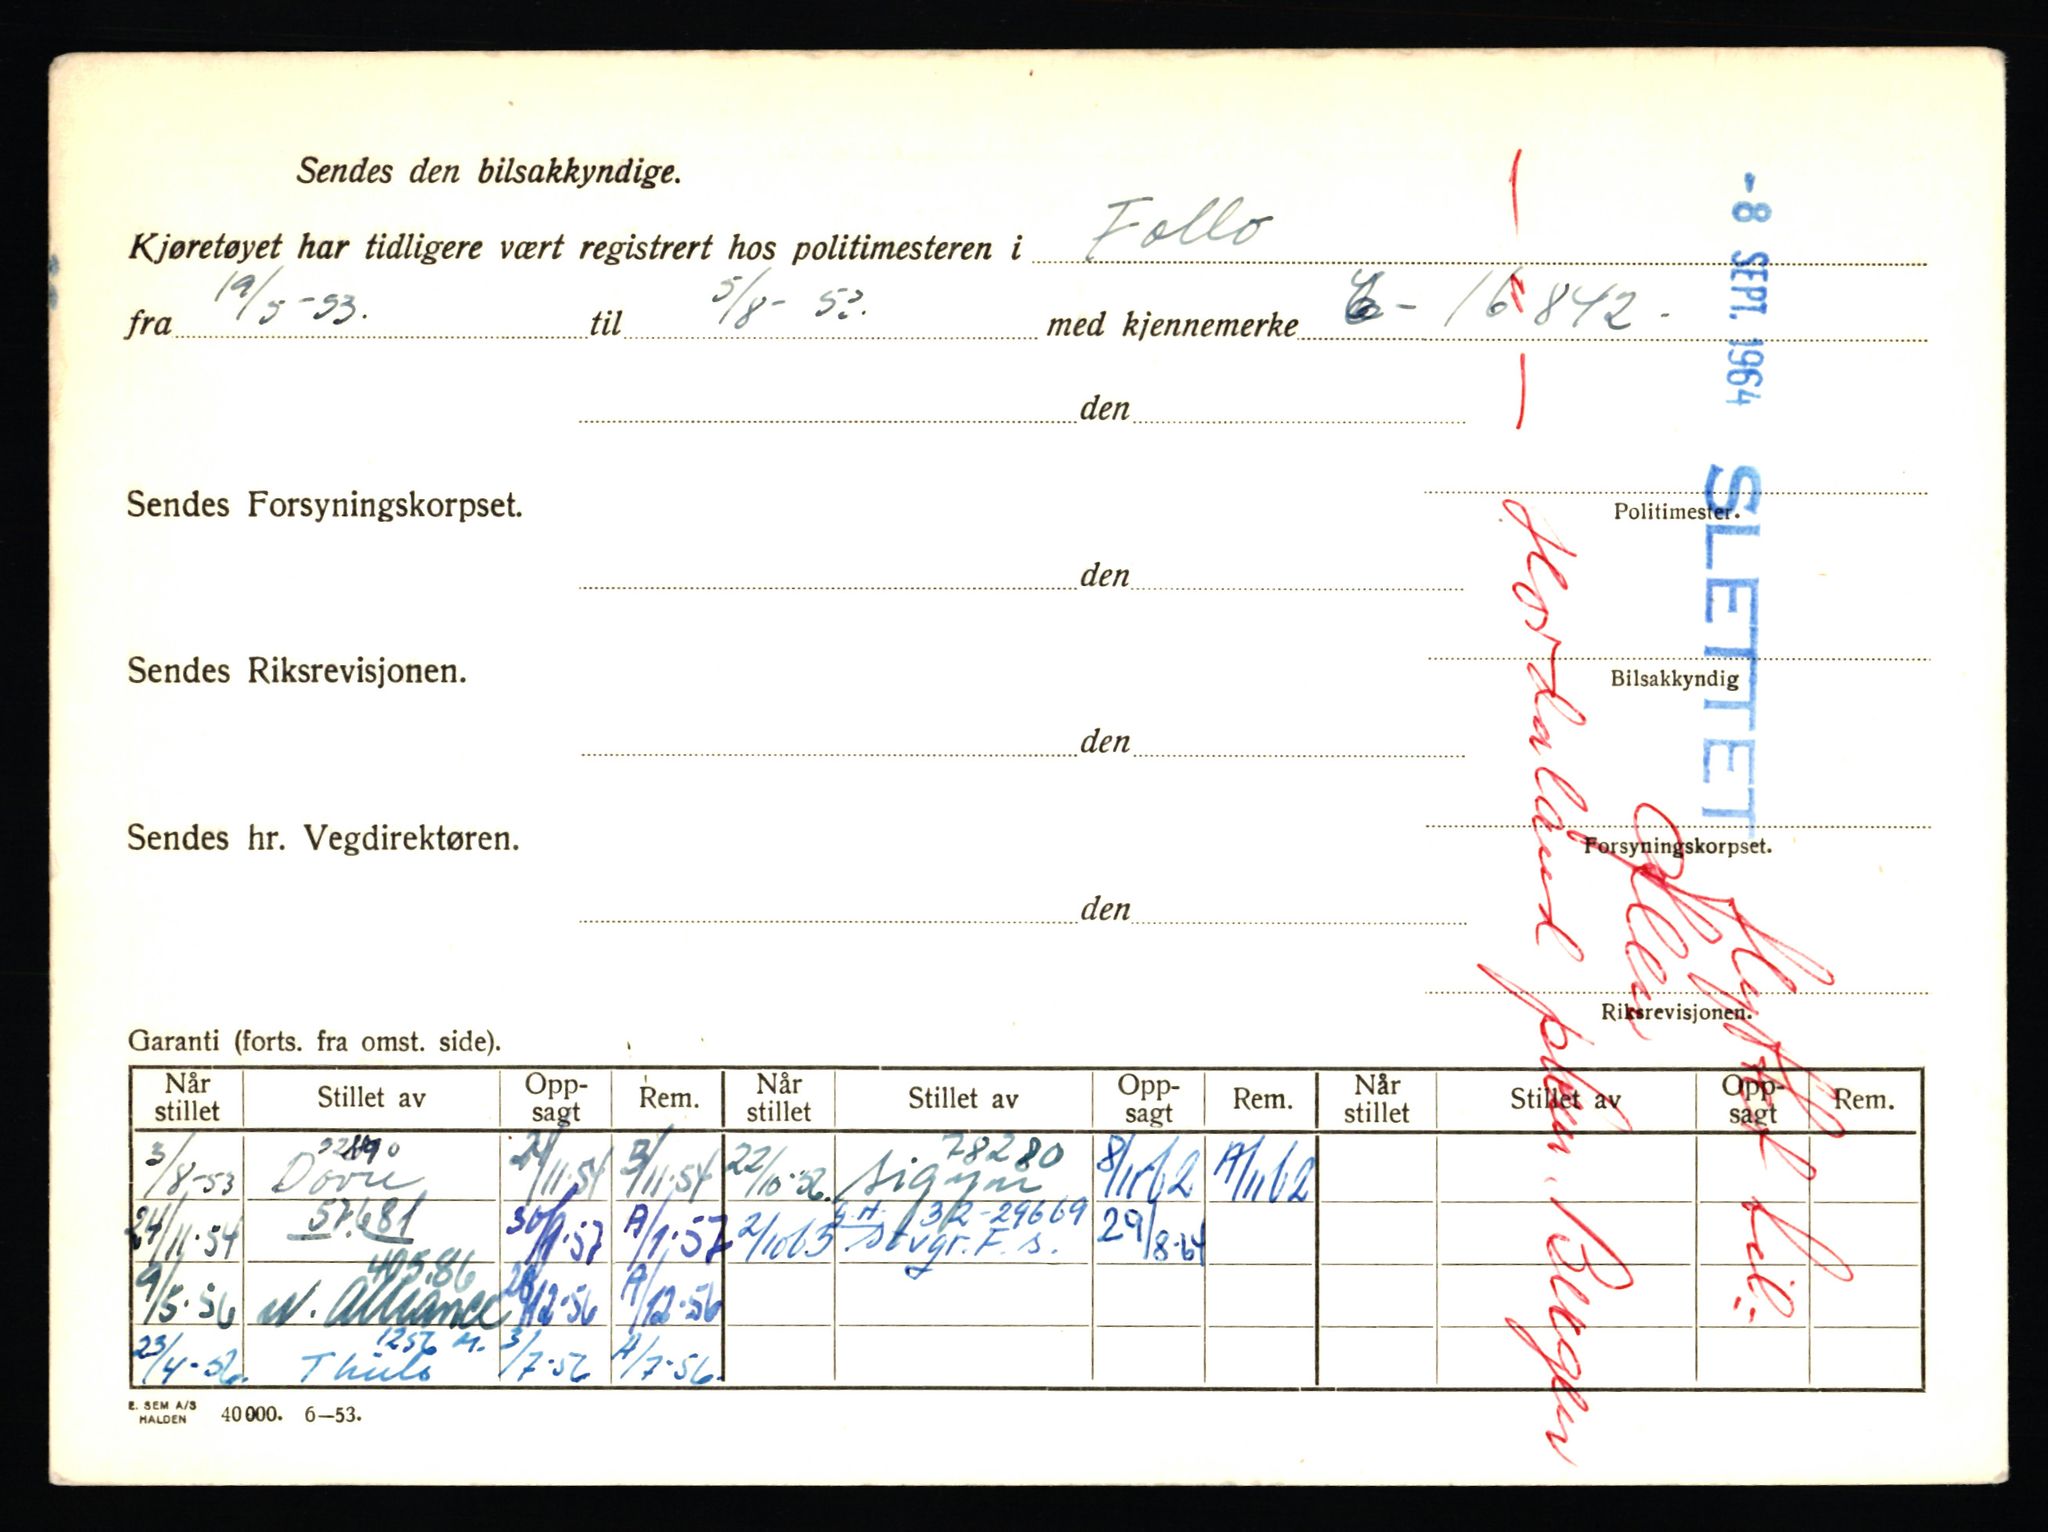 Sendes den bilsakkyndige.
Kjøretøyet har tidligere vært registrert hos politimesteren i Follo
fra 19/5-53. til 5/8-53. med kjennemerke - 16842.
den
Politimester.
Sendes Forsyningskorpset.
den
Bilsakkyndig
Sendes Riksrevisjonen.
den
Forsyningskorpset.
Sendes hr. Vegdirektøren.
den
Riksrevisjonen.
- 8 SEPT. 1964 SLETTET
Flyttet til:
politi, Bergen
Garanti (forts. fra omst. side).
Når stillet Stillet av Opp-sagt Rem. Når stillet Stillet av Opp-sagt Rem. Når stillet Stillet av Opp-sagt Rem.
3/8-53 Dovre 24/11.54 3/11.54 22/10.56. Sigyn 78280 8/11.62 A/11.62
24/11.54 57.681 30/1.57 A/1.57 2/10.63 Stvgr. F.s. 312-29669 29/8.64
9/5.56 N. Alliance 405.86 28/12.56 A/12.56
23/4-56. Thule 1256 M. 3/7.56 A/7.56.
E. SEM A/S
HALDEN 40000. 6—53.